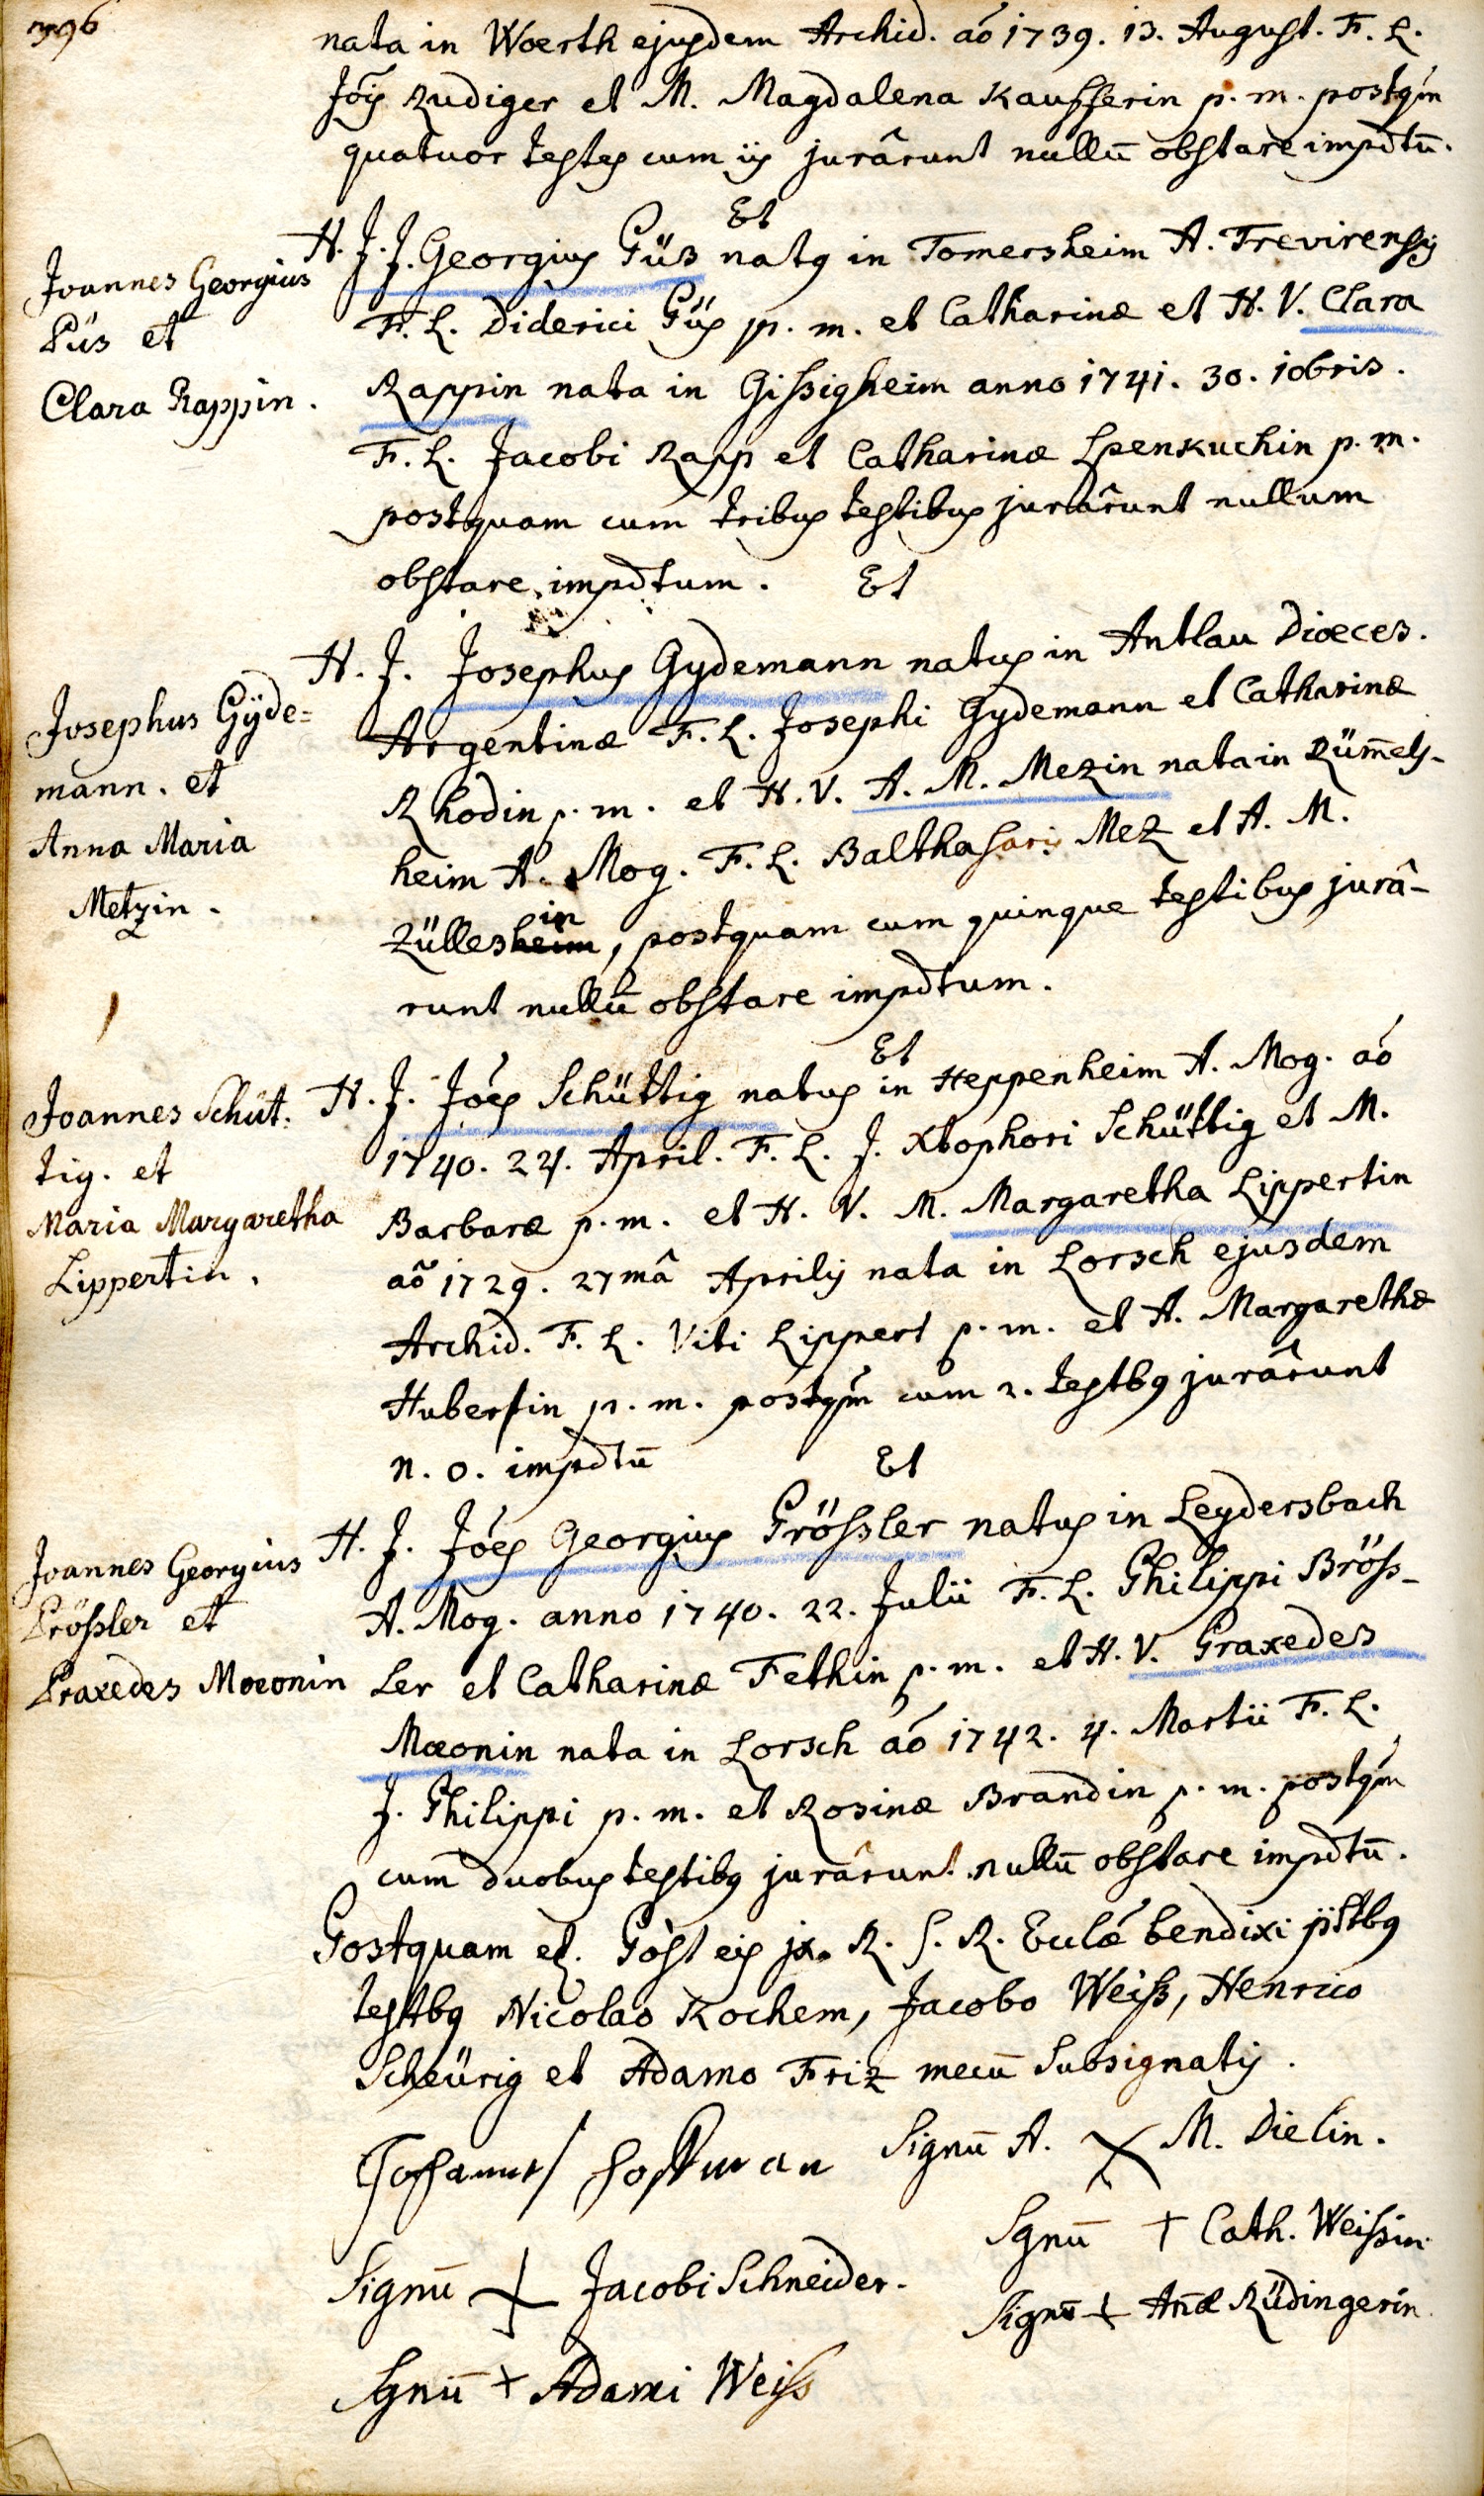 396
nata in Woerth ejusdem Archid. aó 1739. 13. August. F. L.
Jöis Rudiger et M. Magdalena Kaufferin p. m. postqm
quatuor testes cum iis jurârunt nullū obstare impdtū.
Et
Joannes Georgius
Püs et
Clara Rappin.
H. J. J. Georgius Püs natq in Tomersheim A. Trevirensis
F. L. Diderici Püs p. m. et Catharinæ et H. V. Clara
Rappin nata in Gißigheim anno 1741. 30. 10bris.
F. L. Jacobi Rapp et Catharinæ Spenkuchin p. m.
postquam cum tribus testibus jurârunt nullum
obstare impdtum. Et
Josephus Gÿde=
mann. et
Anna Maria
Metzin.
H. J. Josephus Gydemann natus in Antlau Dioeces.
Argentinæ F. L. Josephi Gydemann et Catharinæ
Rhodin p. m. et H. V. A. M. Mezin nata in Rüm̄els-
heim A. Mog. F. L. Balthasaris Mez et A. M.
Züllesheim in, postquam cum quinque testibus jurâ-
runt nullū obstare impdtum.
Et
Joannes Schüt:
tig. et
Maria Margaretha
Lippertin.
H. J. Jóes Schüttig natus in Heppenheim A. Mog. aó
1740. 24. April. F. L. J. Xtophori Schüttig et M.
Barbaræ p. m. et H. V. M. Margaretha Lippertin
aõ 1729. 27mâ Aprilis nata in Lorsch ejusdem
Archid. F. L. Viti Lippert p. m. et A. Margarethæ
Hubertin p. m. postqm cum 2. testbq jurârunt
n. o. impdtū Et
Joannes Georgius
Prößler et
Praxedes Moeonin
H. J. Jóes Georgius Prößler natus in Leydersbach
A. Mog. anno 1740. 22. Julii F. L. Philippi Bröß-
ler et Catharinæ Fethin p. m. et H. V. Praxedes
Moeonin nata in Lorsch aó 1742. 4. Martii F. L.
J. Philippi p. m. et Rosinæ Brandin p. m. postqm
cum duobus testibq jurârunt nullū obstare impdtū.
Postquam et. Póst eis jx. R. S. R. Eulæ bendixi
testbq Nicolao Kochem, Jacobo Weiß, Henrico
Scheürig et Adamo Friz mecū subsignatis.
Johannes Hoffman Signū A. X M. Dielin.
Sgnū + Cath. Weißin
Signū + Jacobi Schneider.
Signū + An̄æ Rüdingerin
Sgnū + Adami Weiß